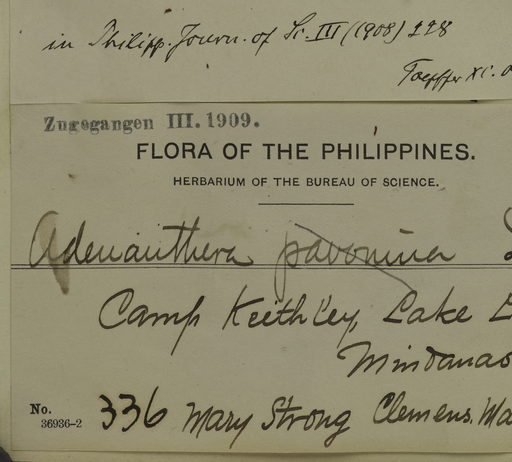 in Philipp. Journ. of Sc. III (1908) 228
Toepffer XI. 0
Zugegangen III. 1909.
FLORA OF THE PHILIPPINES.
HERBARIUM OF THE BUREAU OF SCIENCE.
Adenanthera pavonina L
Camp Keithley, Lake L
Mindanao
No. 336 Mary Strong Clemens. Ma
36936-2